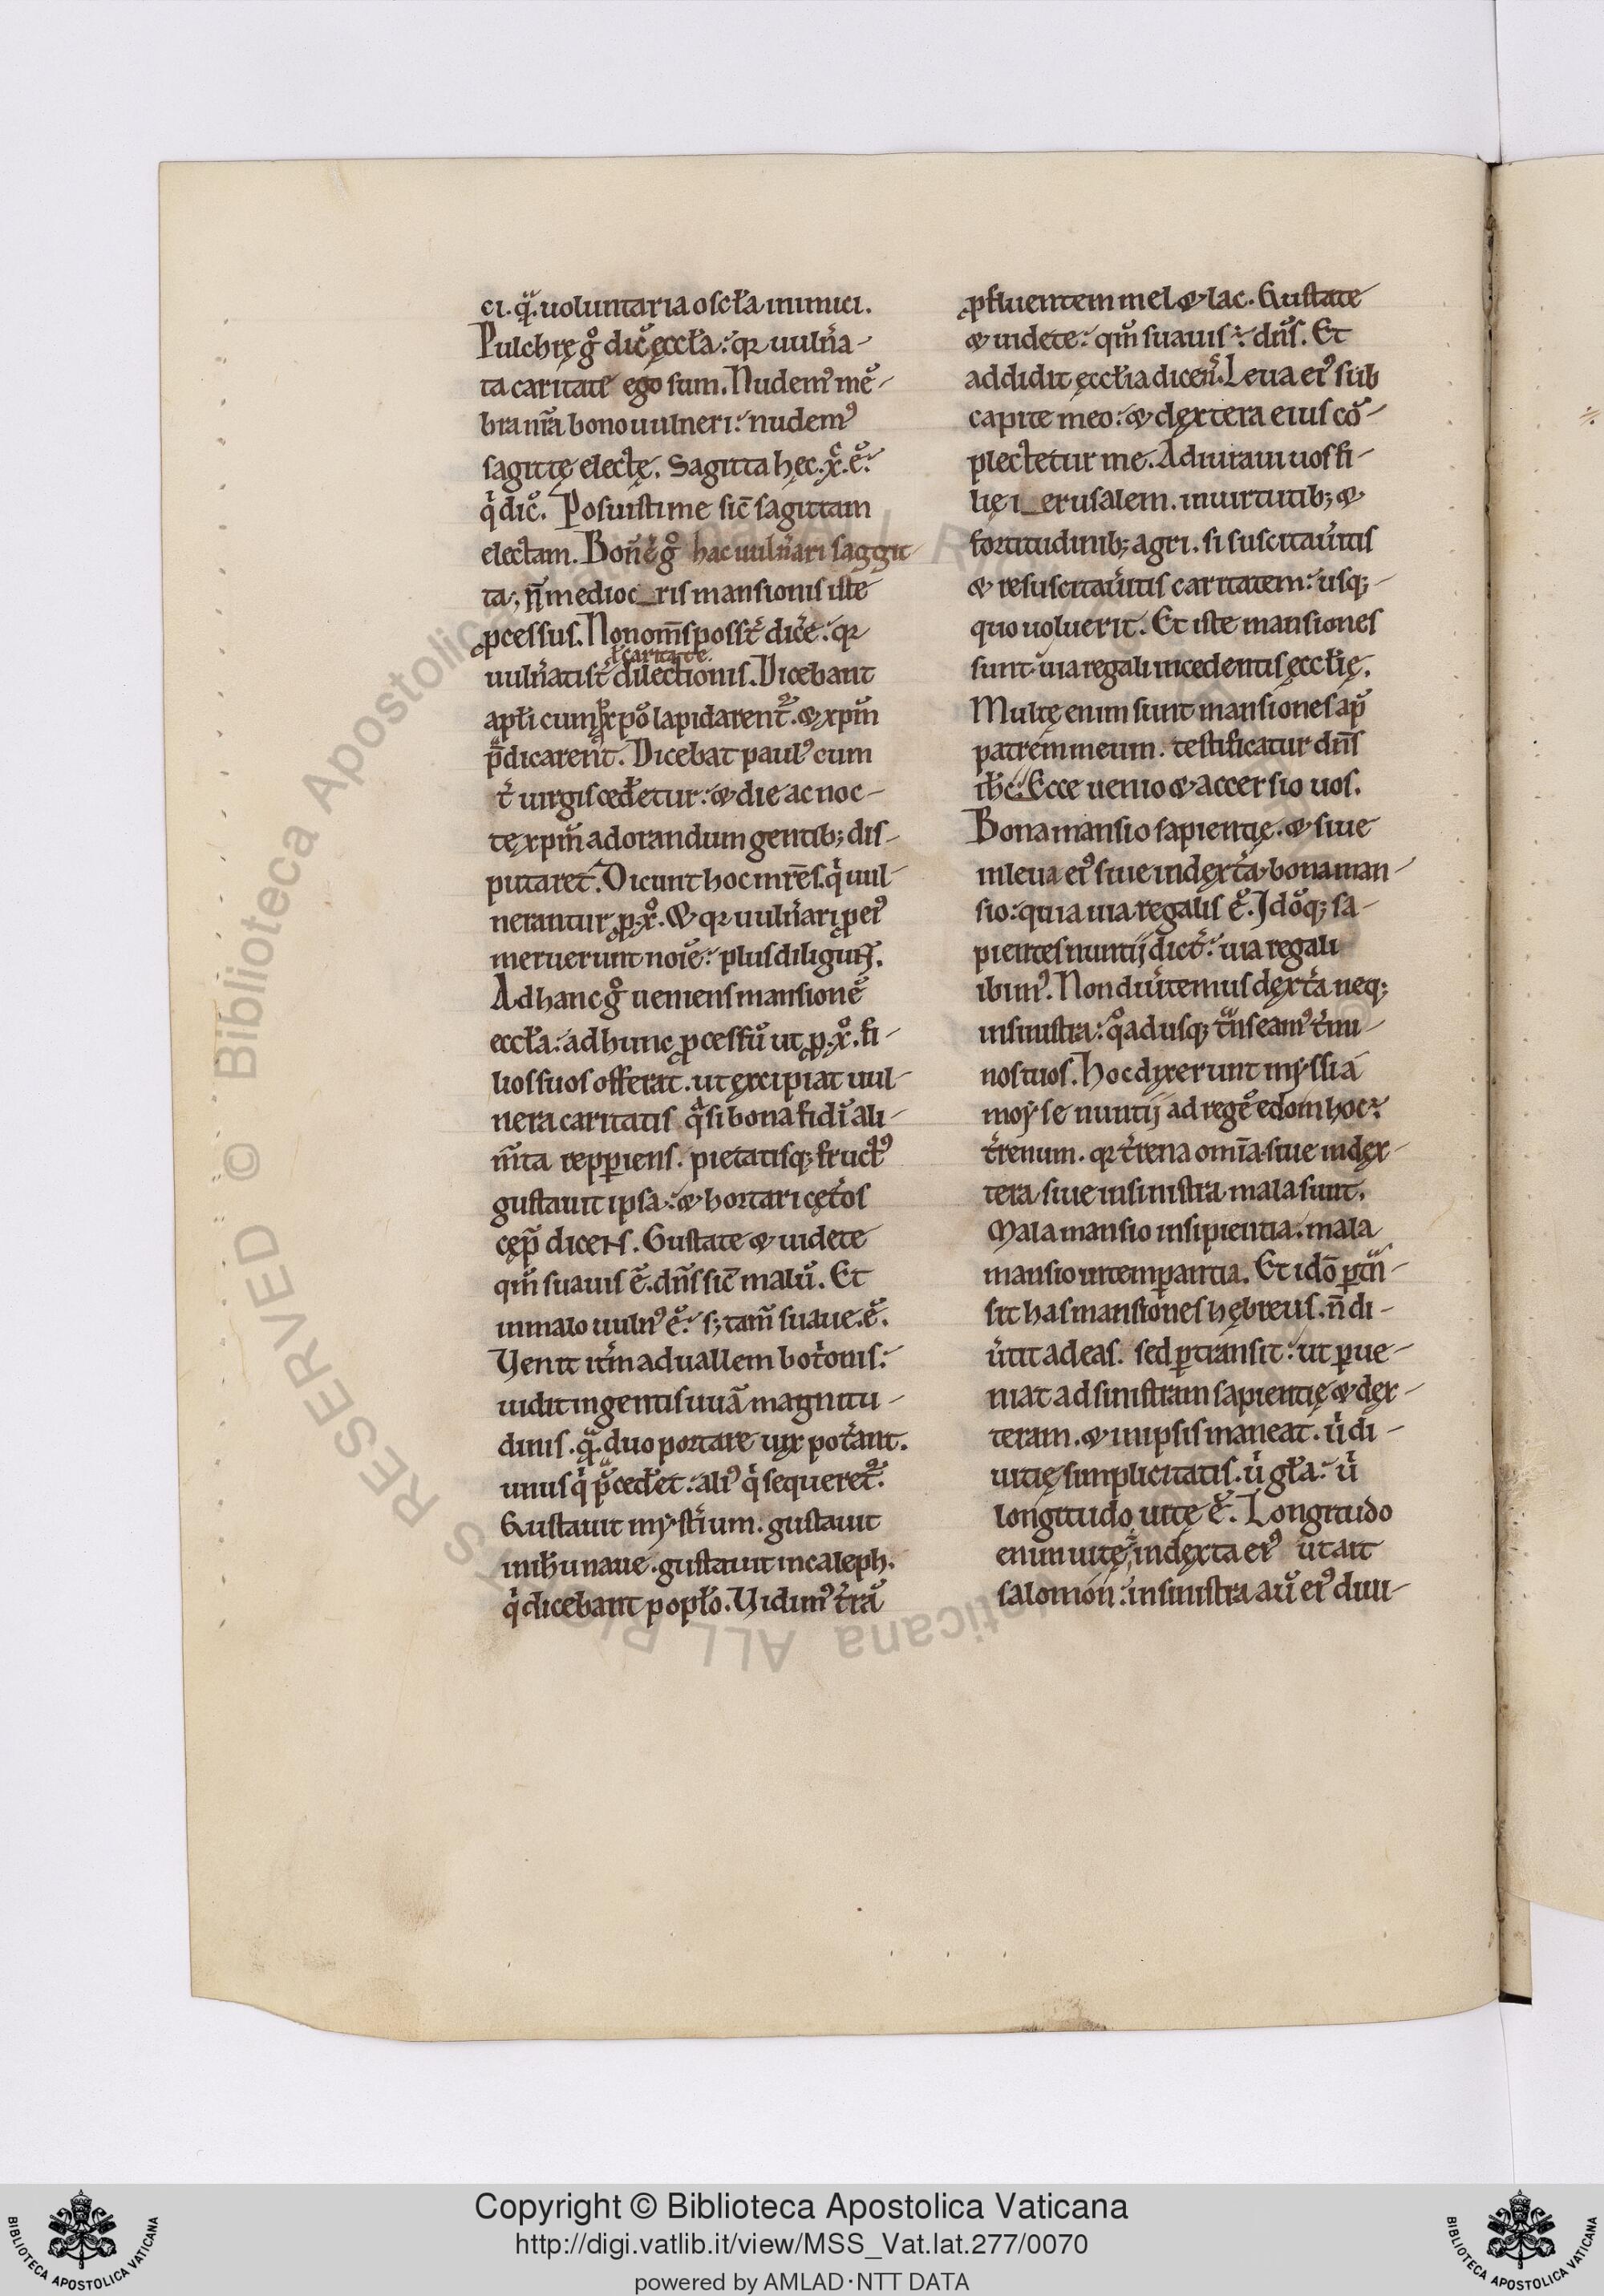 ci. qͣ. uoluntaria oscl̃a inimici.
Pulchrę gͦ dic̃ eccl̃a: qꝛ uuln̾a-
ta caritate ego sum. Nudemꝰ mẽ-
bra nr̃a bono uulneri: nudemꝰ
sagittę electę. Sagitta hec. x̃. ẽ.
qͥ dic̃. Posuisti me sic̃ sagittam
electam. Bon̄ ẽ gͦ hac uuln̾ari saggit-
ta; n̄ medioc_ris mansionis iste
ꝓcessus. Non om̄s poss̄t dic̾e: qꝛ
ł caritate.
uuln̾ati s̄t dilectionis. Dicebant
apl̃i cum ꝓ xpõ lapidarent᷑. ⁊ xpm̃
p̄dicarent. Dicebat paulꝰ cum
t̾ uirgis cęd̾etur: ⁊ die ac noc-
te xpm̃ adorandum gentib; dis-
putaret. Dicunt hoc mr̄̃es. qͥ uul-
nerantur ꝓ. xͦ. ⁊ qꝛ uuln̾ari ꝓ eiꝰ
meruerunt noĩe: plus diligunt᷑.
Ad hanc gͦ ueniens mansionẽ
eccl̃a: ad hunc ꝓcessũ ut ꝓ. xͦ. fi-
lios suos offerat. ut excipiat uul-
nera caritatis qͣsi bona fidĩ ali-
m̃ta repꝑiens. pietatisq; fructꝰ
gustauit ipsa: ⁊ hortari cęt̾os
cęp̃ dicens. Gustate ⁊ uidete
qm̃ suauis ẽ. dn̄s sic̃ malũ. Et
in malo uulnꝰ ẽ: s; tam̃ suaue. ẽ.
Venit it̾m ad uallem bot̾onis:
uidit ingentis uuã magnitu-
dinis. qͣ. duo portare uix pot̾ant.
unus qͥ p̄ced̾et: aliꝰ qͥ sequeret᷑.
Gustauit myst̾ium. gustauit
in ih̃u naue. gustauit in caleph.
qͥ dicebant popl̃o. Vidimꝰ t̾rã
ꝓfluentem mel ⁊ lac. Gustate
⁊ uidete: qm̃ suauis ÷ dn̄s. Et
addidit ęccl̃ia dicens. Leua eiꝰ sub
capite meo: ⁊ dextera eius cõ-
plectetur me. Adiuraui uos fi-
lię i_erusalem. in uirtutib; ⁊
fortitudinib; agri. si suscitau̾itis
⁊ resuscitau̾itis caritatem: usq;-
quo uoluerit. Et iste mansiones
sunt uia regali incedentis ęccl̃ię.
Multę enim sunt mansiones ap̃
patrem meum. testificatur dn̄s
ih̃c. Ecce uenio ⁊ accersio uos.
Bona mansio sapientię. ⁊ siue
in leua eiꝰ siue in dext̾a bona man-
sio: quia uia regalis ẽ. Idõq; sa-
pientes nuntij dic̄t: uia regali
ibimꝰ. Non diu̾temus dext̾a neq;
in sinistra: qͦadusq; tͣnseamꝰ t̾mi-
nos tuos. Hoc dixerunt myssi a
moẏse nuntij ad regẽ edom hoc ÷
t̾renum. qꝛ t̾rena omĩa siue in dex-
tera siue in sinistra mala sunt.
Mala mansio insipientia. mala
mansio intemꝑantia. Et idõ ꝑtͣn-
sit has mansiones hębreus. n̄ di-
u̾tit ad eas. sed ꝑtransit: ut ꝑue-
niat ad sinistram sapientię ⁊ dex-
teram. ⁊ in ipsis maneat. uͥ di-
uitię simplicitatis. uͥ gl̃a: uͥ
longitudo uitę ẽ. Longitudo
enim uitę in dexta eiꝰ ut ait
salomon: in sinistra aũ eiꝰ diui-
© Biblioteca Apostolica Vaticana ALL RIGHTS RESERVED
Copyright © Biblioteca Apostolica Vaticana
http://digi.vatlib.it/view/MSS_Vat.lat.277/0070
powered by AMLAD·NTT DATA
BIBLIOTECA APOSTOLICA VATICANA
BIBLIOTECA APOSTOLICA VATICANA